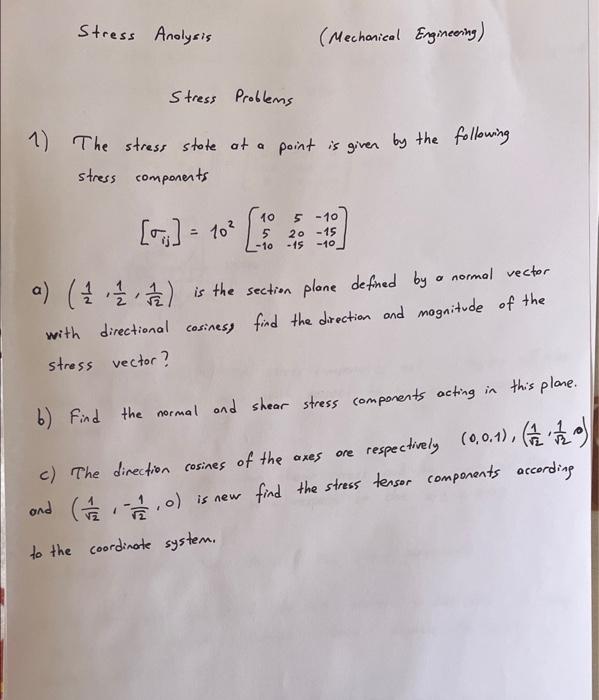 Stress Analysis (Mechanical Engineering)
Stress Problems
1) The stress state at a point is given by the following
stress components
[σij] = 10² [10 5 -10
5 20 -15
-10 -15 -10]
a) (1/2, 1/2, 1/√2) is the section plane defined by a normal vector
with directional cosiness find the direction and magnitude of the
stress vector?
b) Find the normal and shear stress components acting in this plane.
c) The direction cosines of the axes are respectively (0,0,1), (1/√2, 1/√2, 0)
and (1/√2, -1/√2, 0) is new find the stress tensor components according
to the coordinate system.